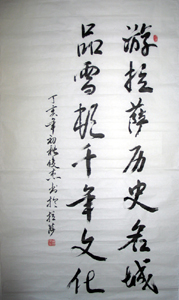 游拉萨历史名城
品雪域千年文化
丁亥年初秋俊杰书于拉萨